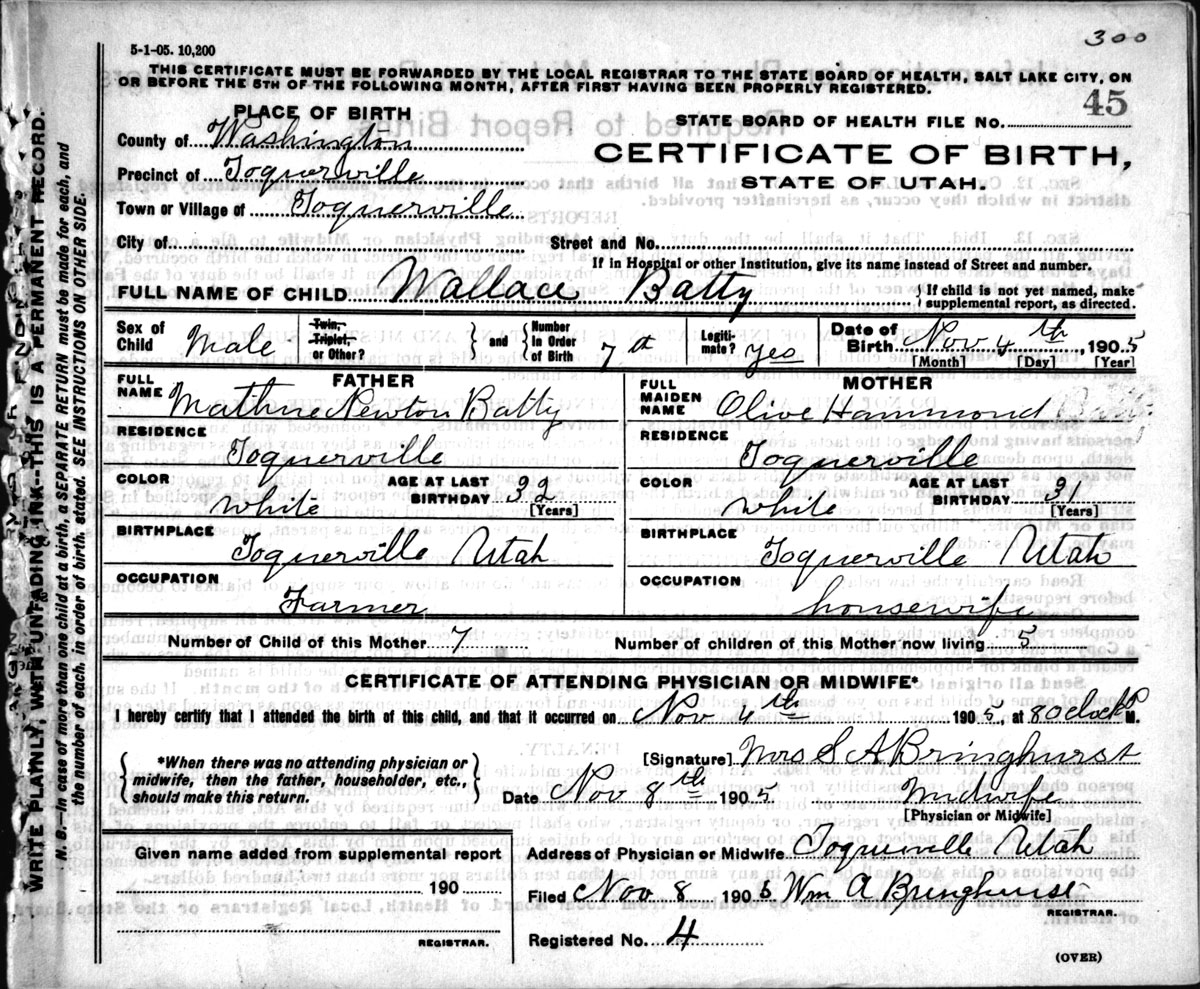 300
5-1-05. 10,200
THIS CERTIFICATE MUST BE FORWARDED BY THE LOCAL REGISTRAR TO THE STATE BOARD OF HEALTH, SALT LAKE CITY, ON
OR BEFORE THE 5TH OF THE FOLLOWING MONTH, AFTER FIRST HAVING BEEN PROPERLY REGISTERED.
45
PLACE OF BIRTH
STATE BOARD OF HEALTH FILE No.
County of Washington
CERTIFICATE OF BIRTH,
Precinct of Toquerville
STATE OF UTAH.
Town or Village of Toquerville
City of Street and No.
If in Hospital or other Institution, give its name instead of Street and number.
FULL NAME OF CHILD Wallace Batty { If child is not yet named, make supplemental report, as directed.
Sex of Child Male Twin, Triplet, or Other? } and { Number in Order of Birth 7th Legiti-mate? Yes Date of Birth Nov 4th, 1905
[Month] [Day] [Year]
FATHER
FULL NAME Mathue Newton Batty
MOTHER
FULL MAIDEN NAME Olive Hammond
RESIDENCE Toquerville
RESIDENCE Toquerville
COLOR White AGE AT LAST BIRTHDAY 32 [Years]
COLOR White AGE AT LAST BIRTHDAY 31 [Years]
BIRTHPLACE Toquerville Utah
BIRTHPLACE Toquerville Utah
OCCUPATION Farmer
OCCUPATION housewife
Number of Child of this Mother 7 Number of children of this Mother now living 5
CERTIFICATE OF ATTENDING PHYSICIAN OR MIDWIFE*
I hereby certify that I attended the birth of this child, and that it occurred on Nov 4th 1905, at 8 oclock P M.
{ *When there was no attending physician or
midwife, then the father, householder, etc.,
should make this return. }
[Signature] Mrs S A Bringhurst
Date Nov 8th 1905 Midwife
[Physician or Midwife]
Given name added from supplemental report
190
REGISTRAR.
Address of Physician or Midwife Toquerville Utah
Filed Nov 8 1905 Wm A Bringhurst
REGISTRAR.
Registered No. 4
(OVER)
WRITE PLAINLY, WITH UNFADING INK—THIS IS A PERMANENT RECORD.
N. B.—In case of more than one child at a birth, a SEPARATE RETURN must be made for each, and
the number of each, in order of birth, stated. SEE INSTRUCTIONS ON OTHER SIDE.